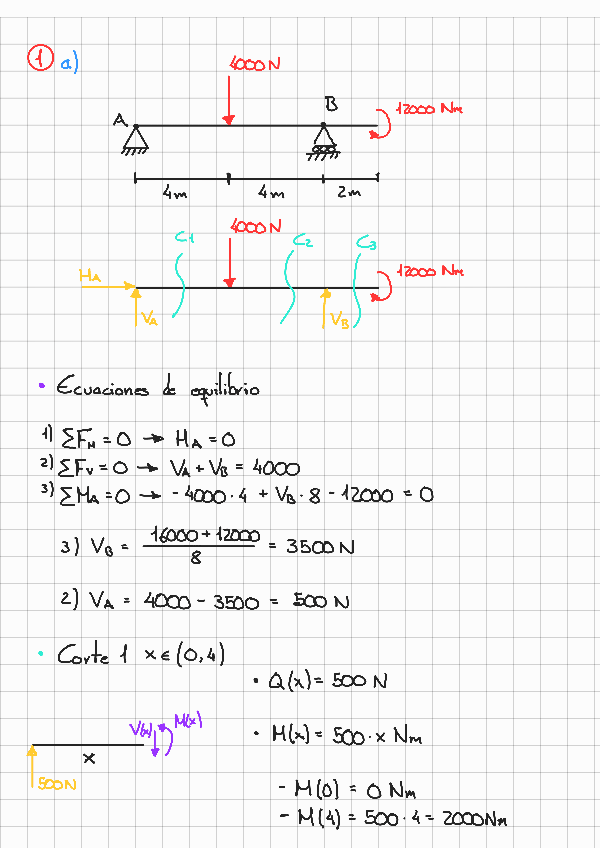 1 a)
4000 N
A
B
12000 Nm
4m
4m
2m
4000 N
C1
C2
C3
HA
12000 Nm
VA
VB
• Ecuaciones de equilibrio
1) ΣFH = 0 → HA = 0
2) ΣFV = 0 → VA + VB = 4000
3) ΣMA = 0 → - 4000 · 4 + VB · 8 - 12000 = 0
3) VB = (16000 + 12000) / 8 = 3500 N
2) VA = 4000 - 3500 = 500 N
• Corte 1 x ∈ (0,4)
• Q(x) = 500 N
V(x) M(x)
• M(x) = 500 · x Nm
x
500 N
- M(0) = 0 Nm
- M(4) = 500 · 4 = 2000 Nm